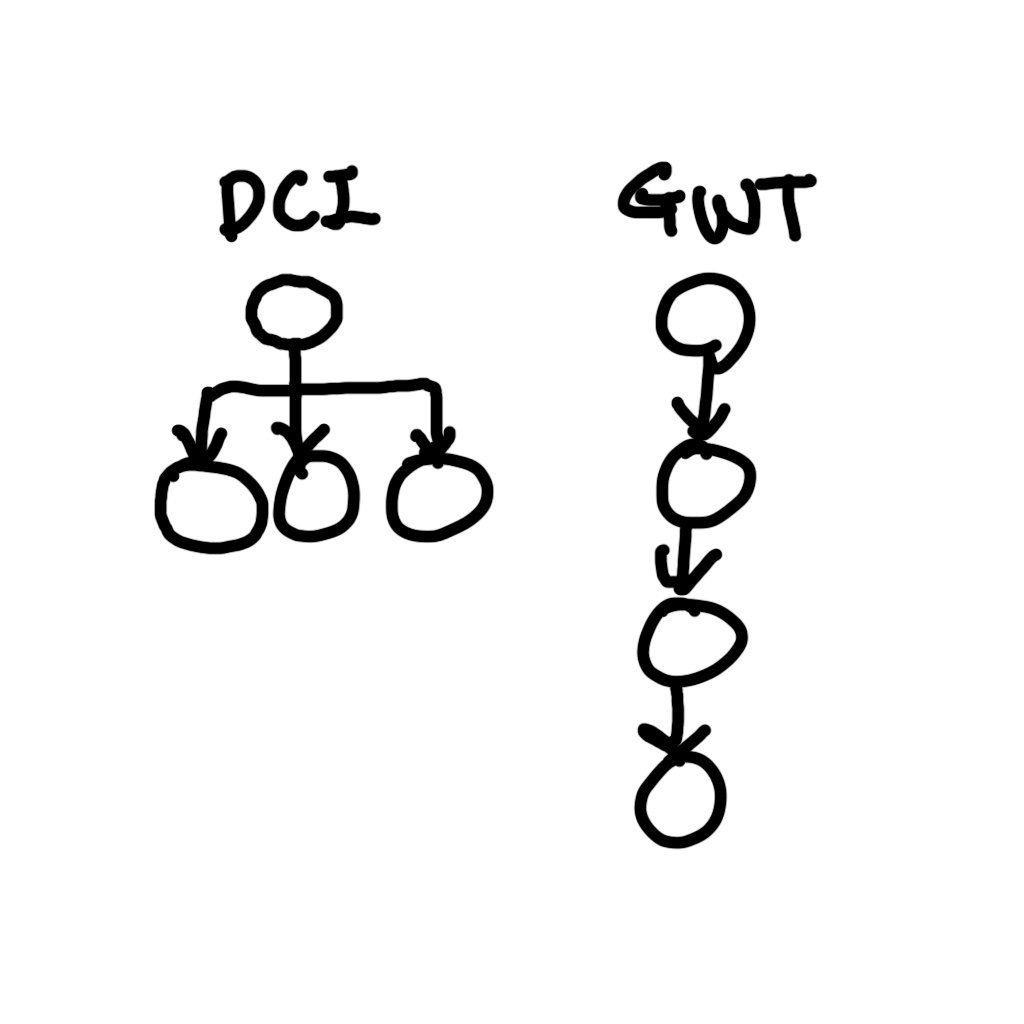 DCI GWT